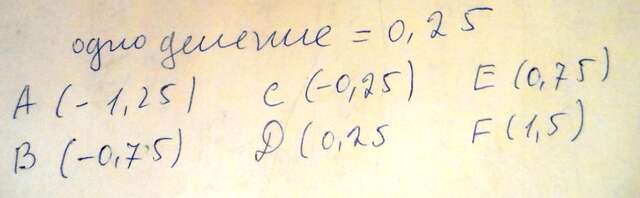 одно деление = 0,25
A (-1,25) C (-0,25) E (0,75)
B (-0,75) D (0,25 F (1,5)